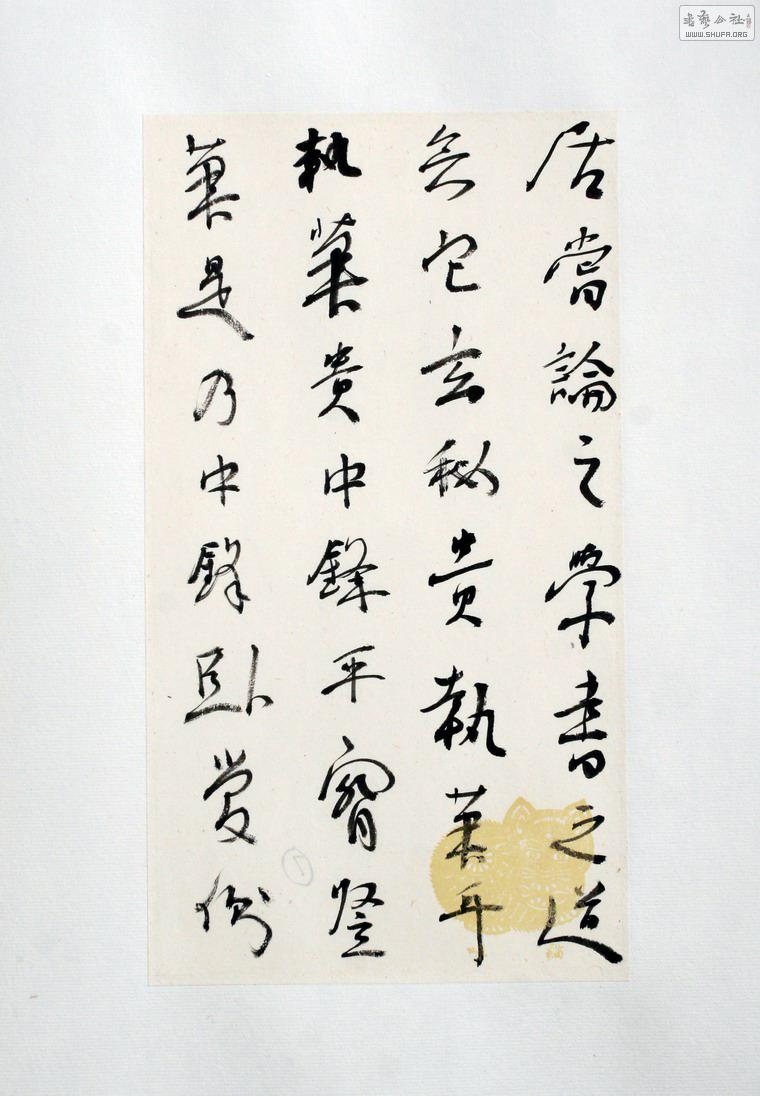 居嘗論之學書之道
無它玄秘貴執筆耳
執筆貴中鋒平腕竪
筆是乃中鋒臥管側
書藝公社
WWW.SHUFA.ORG
①